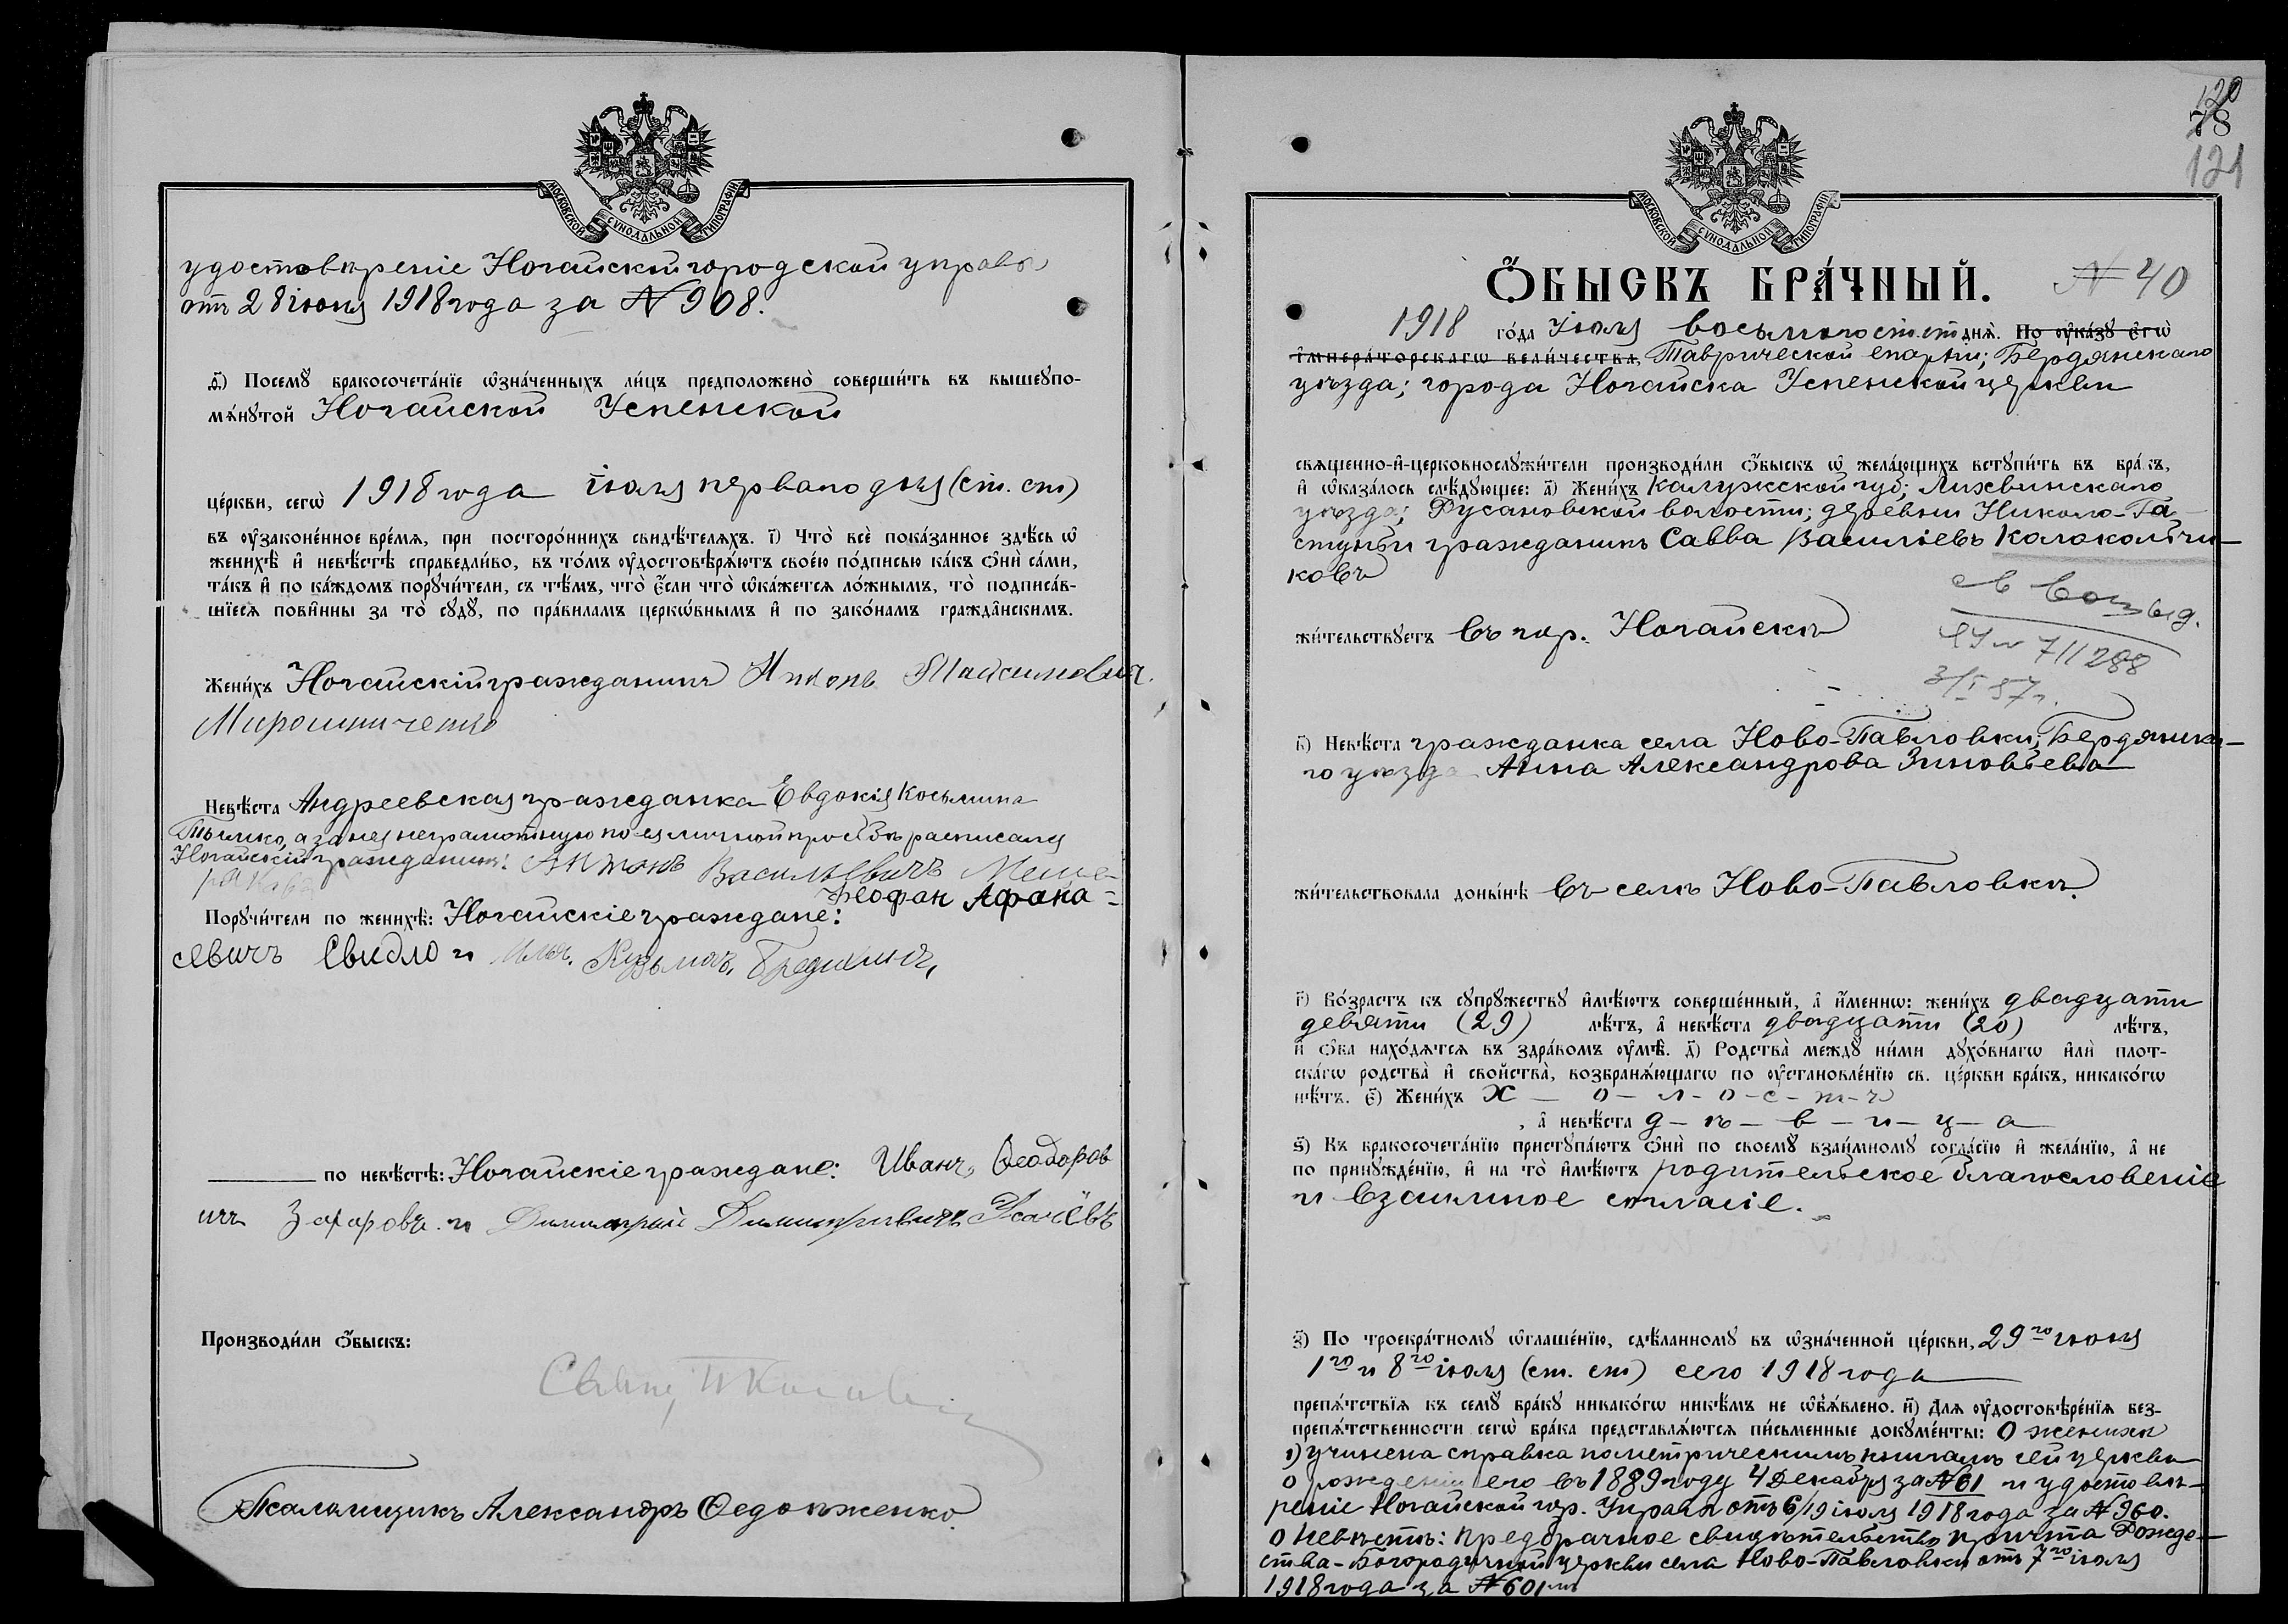 МОСКОВСКОЙ СѴНОДАЛЬНОЙ ТИПОГРАФІИ
удостовѣреніе Ногайской городской управы
отъ 28 іюня 1918 года за № 908.
д҃) Посемꙋ̀ бракосочета́нїе ѡ҆зна́ченныхъ ли́цъ предположено̀ соверши́ть въ вышеꙋпо-
мѧ́нꙋтой Ногайской Успенской
це́ркви, сегѡ̀ 1918 года іюля перваго дня (ст. ст)
въ ᲂу҆зако́ненное вре́мѧ, при посторо́ннихъ свидѣ́телѧхъ. і҃) Что̀ всѐ пока́занное здѣ́сь ѡ҆
женихѣ̀ и҆ невѣ́стѣ справедли́во, въ то́мъ ᲂу҆достовѣрѧ́ютъ свое́ю по́дписью ка́къ ѻ҆нѝ са́ми,
та́къ и҆ по ка́ждомъ порꙋчи́тели, съ тѣ́мъ, что̀ є҆́сли что̀ ѡ҆ка́жетсѧ ло́жнымъ, то̀ подписа́в-
шїесѧ пови́нны за то̀ сꙋдꙋ̀, по пра́виламъ церкѡ́внымъ и҆ по зако́намъ гражда̑нскимъ.
Жени́хъ Ногайскій гражданинъ Никонъ Максимовичъ
Мирошниченко
Невѣ́ста Андреевская гражданка Евдокія Косьмина
Тымко, а за нея неграмотную по ея личной просьбѣ расписался
Ногайскій гражданинъ: Антонъ Васильевичъ
Порꙋчи́тели по женихѣ̀: Ногайскіе граждане: Феофан Афана=
сѣвичъ Свидло и Илья Кузьмичъ Бредихинъ,
по невѣ́стѣ: Ногайскіе граждане: Иванъ Ѳеодоров
ичъ Захаровъ и Димитрій Димитріевичъ
Производи́ли ѻ҆́быскъ:
Свящ.
Псаломщикъ Александръ
120
78
121
МОСКОВСКОЙ СѴНОДАЛЬНОЙ ТИПОГРАФІИ
Ѻ҆́БЫСКЪ БРА́ЧНЫЙ. № 40
1918 го́да Іюля восьмого ст. ст днѧ̀. По ᲂу҆ка́зꙋ є҆гѡ̀
и҆мпера́торскагѡ вели́чества, Таврической епархіи; Бердянскаго
уѣзда; города Ногайска Успенской церкви
свѧще́нно-и҆-церковнослꙋжи́тели производи́ли ѻ҆́быскъ ѡ҆ жела́ющихъ встꙋпи́ть въ бра́къ,
и҆ ѡ҆каза́лось слѣ́дꙋющее: а҃) Жени́хъ Калужской губ; Лихвинскаго
уѣзда; Русановской волости; деревни Николо-Га-
стуньи гражданинъ Савва Васильевъ Колокольчи-
ковъ
жи́тельствꙋетъ въ гор. Ногайскѣ
711288
в҃) Невѣ́ста гражданка села Ново-Павловки; Бердянска-
го уѣзда Анна Александрова Зиновьева
жи́тельствовала доны́нѣ въ селѣ Ново-Павловкѣ.
г҃) Во́зрастъ къ сꙋпрꙋ́жествꙋ и҆мѣ́ютъ соверше́нный, а҆ и҆́меннѡ: жени́хъ двадцати
девяти (29) лѣ́тъ, а҆ невѣ́ста двадцати (20) лѣ́тъ,
и҆ ѻ҆́ба нахо́дѧтсѧ въ здра́вомъ ᲂу҆мѣ̀. д҃) Родства̀ междꙋ̀ ни́ми дꙋхо́внагѡ и҆лѝ плот-
ска́гѡ родства̀ и҆ сво́йства̀, возбранѧ́ющагѡ по ᲂу҆становле́нїю св. це́ркви бра́къ, никако́гѡ
нѣ́тъ. є҃) Жени́хъ х — о — л — о — с — т — ъ
, а҆ невѣ́ста д — ѣ — в — и — ц — а
ѕ҃) Къ бракосочета́нїю пристꙋпа́ютъ ѻ҆нѝ по своемꙋ̀ взаи́мномꙋ согла́сїю и҆ жела́нїю, а҆ не
по принꙋжде́нїю, и҆ на то̀ и҆мѣ́ютъ родительское благословеніе
и взаимное согласіе.
з҃) По троекра́тномꙋ ѡ҆глаше́нїю, сдѣ́ланномꙋ въ ѡ҆зна́ченной це́ркви, 29го іюня
1го и 8го іюля (ст. ст) сего 1918 года
препѧ́тствїѧ къ семꙋ̀ бра́кꙋ никако́гѡ никѣ́мъ не ѡ҆б̾ѧ́влено. и҃) Длѧ ᲂу҆достовѣре́нїѧ без-
препѧ́тственности сегѡ̀ бра́ка представлѧ́ютсѧ пи́сьменные докꙋме́нты: О женихѣ
1) учинена справка по метрическимъ книгамъ сей церкви
о рожденіи его въ 1889 году 4 Декабря за № 61 и удостовѣ-
реніе Ногайской гор. Управы отъ 6/19 іюля 1918 года за № 960.
О невѣстѣ: предбрачное свидѣтельство причта Рожде-
ства-Богородичной церкви села Ново-Павловки отъ 7го іюля
1918 года за № 601